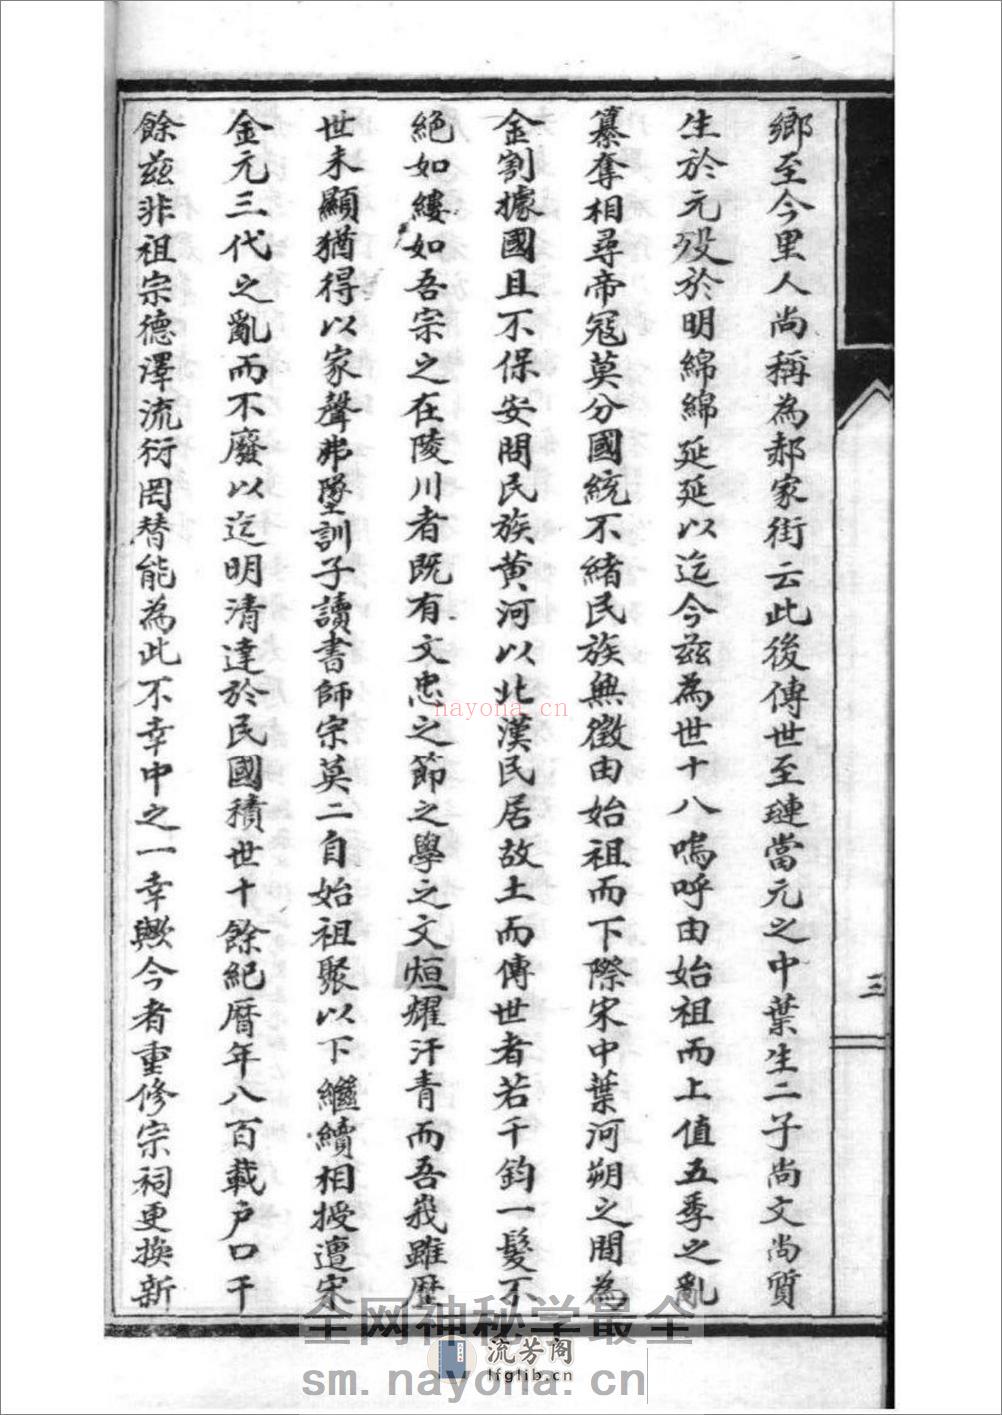 鄉至今里人尚稱為郝家街云此後傳世至璉當元之中葉生二子尚文尚質
生於元歿於明綿綿延延以迄今茲為世十八嗚呼由始祖而上值五季之亂
纂奪相尋帝冦莫分國統不緒民族無徵由始祖而下際宋中葉河朔之間為
金割據國且不保安問民族黄河以北漢民居故土而傳世者若千鈞一髮不
絕如縷如吾宗之在陵川者既有文忠之節之學之文烜耀汗青而吾㢤雖歷
世未顯猶得以家聲弗墜訓子讀書師宗莫二自始祖聚以下繼續相授遭宋
金元三代之亂而不廢以迄明清達於民國積世十餘紀曆年八百載户口千
餘茲非祖宗德澤流衍罔替能為此不幸中之一幸歟今者重修宗祠更換新
三
nayona.cn
全网神秘学最全
流芳阁
lfglib.cn
sm.nayona.cn